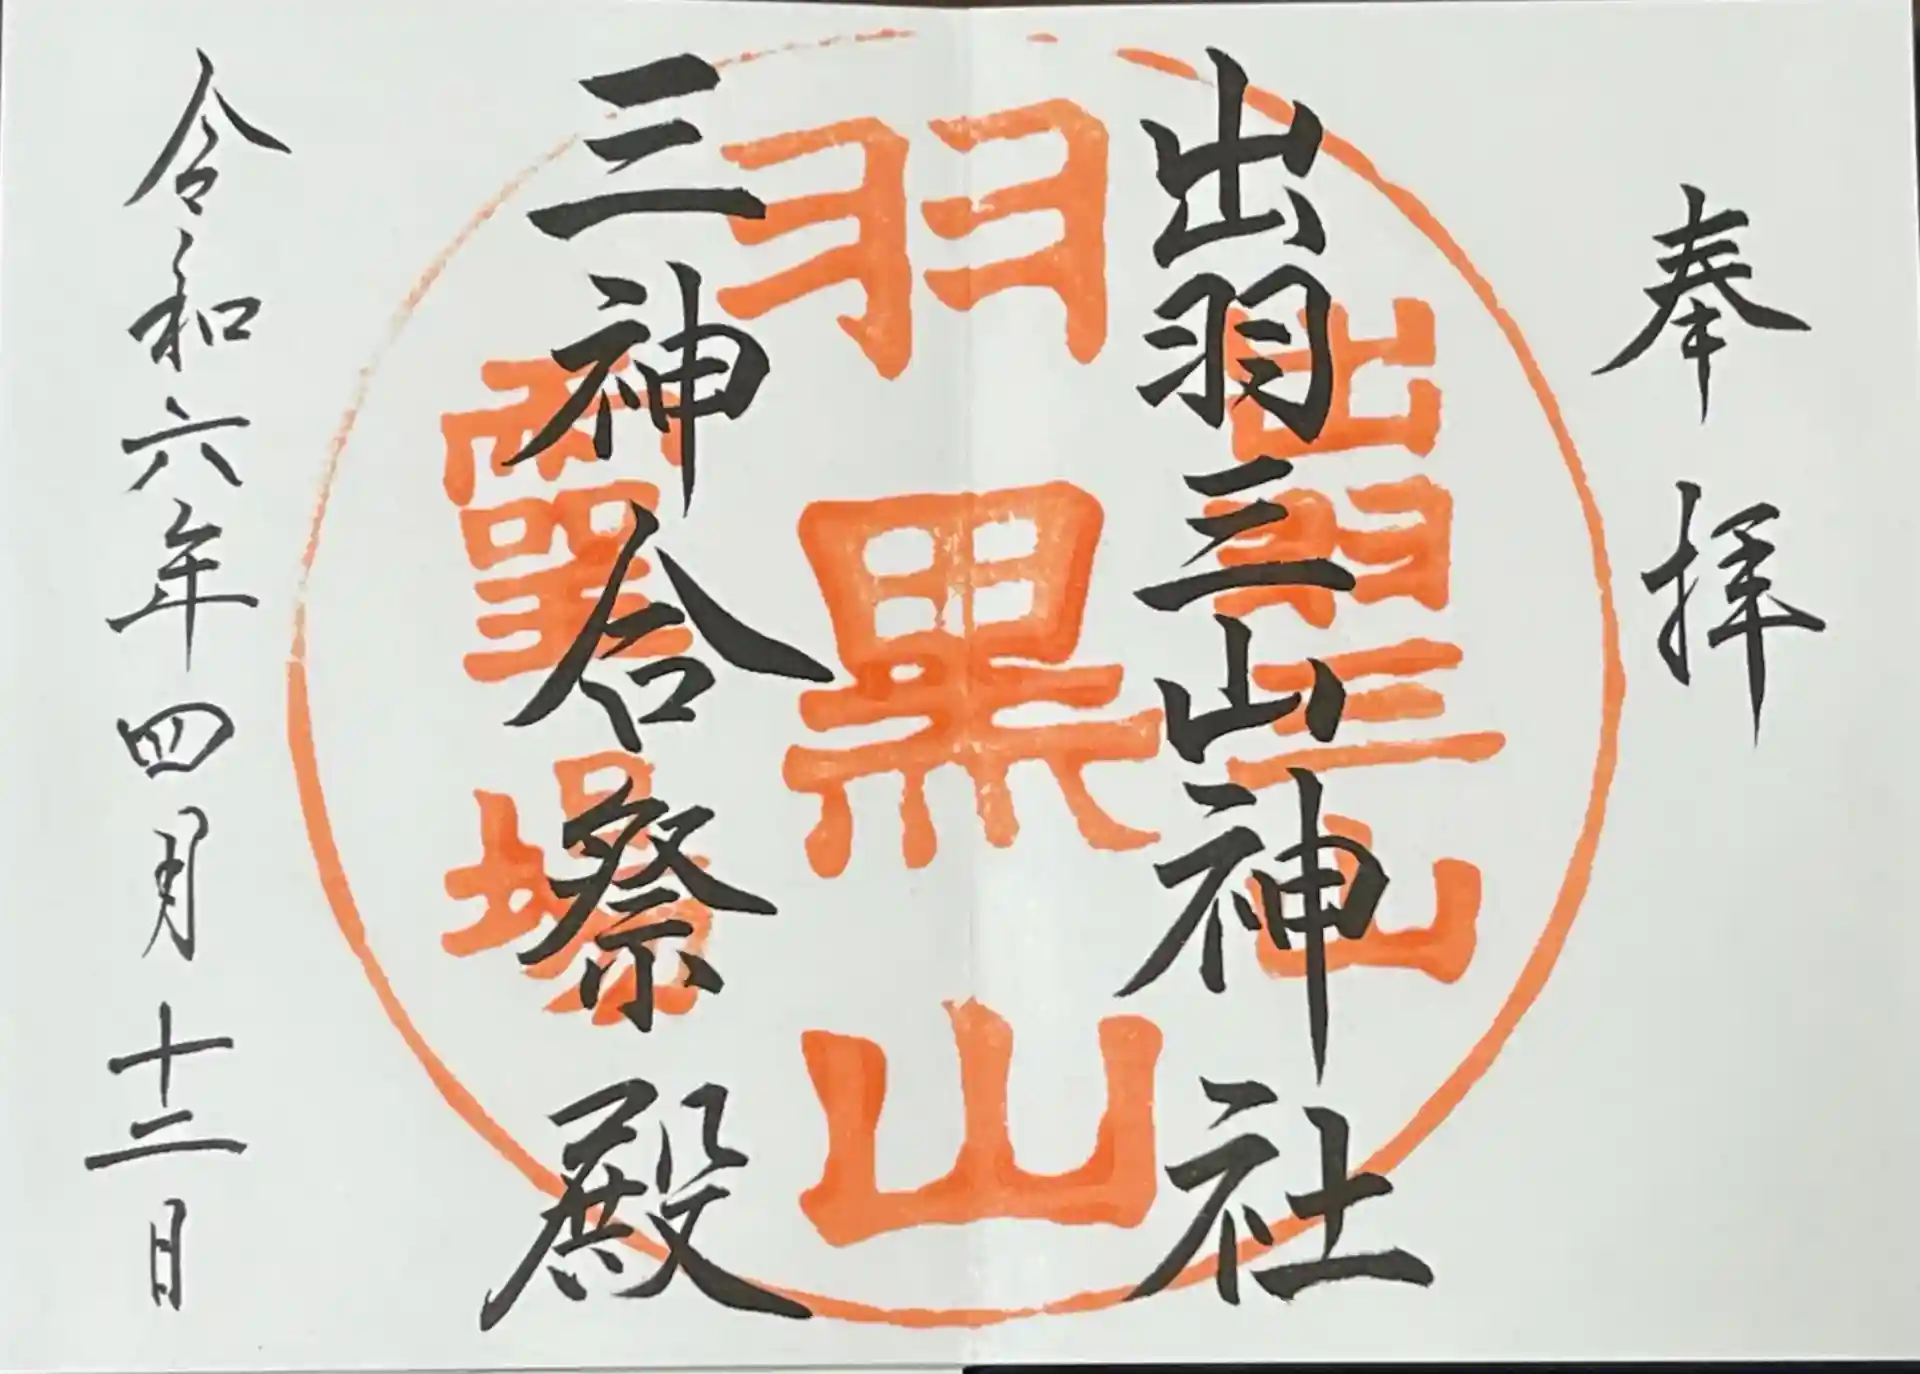 奉拝
出羽三山神社
三神合祭殿
令和六年四月十二日
出羽三山
羽黒山
霊場